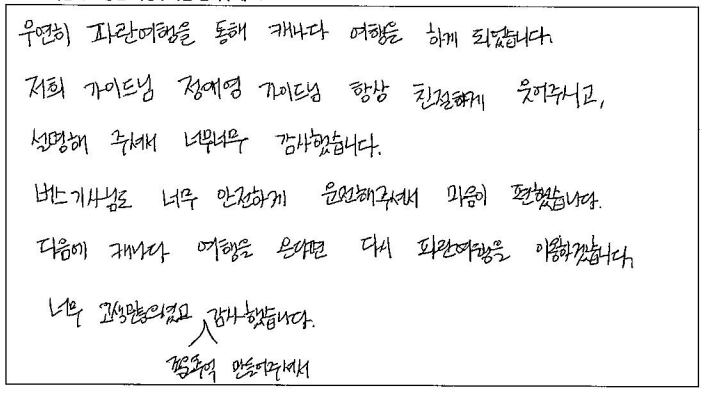 우연히 파란여행을 통해 캐나다 여행을 하게 되었습니다.
저희 가이드님 정애영 가이드님 항상 친절하게 웃어주시고,
설명해 주셔서 너무너무 감사했습니다.
버스기사님도 너무 안전하게 운전해주셔서 마음이 편했습니다.
다음에 캐나다 여행을 온다면 다시 파란여행을 이용하겠습니다.
너무 고생많으셨고 감사했습니다.
좋은추억 만들어주셔서